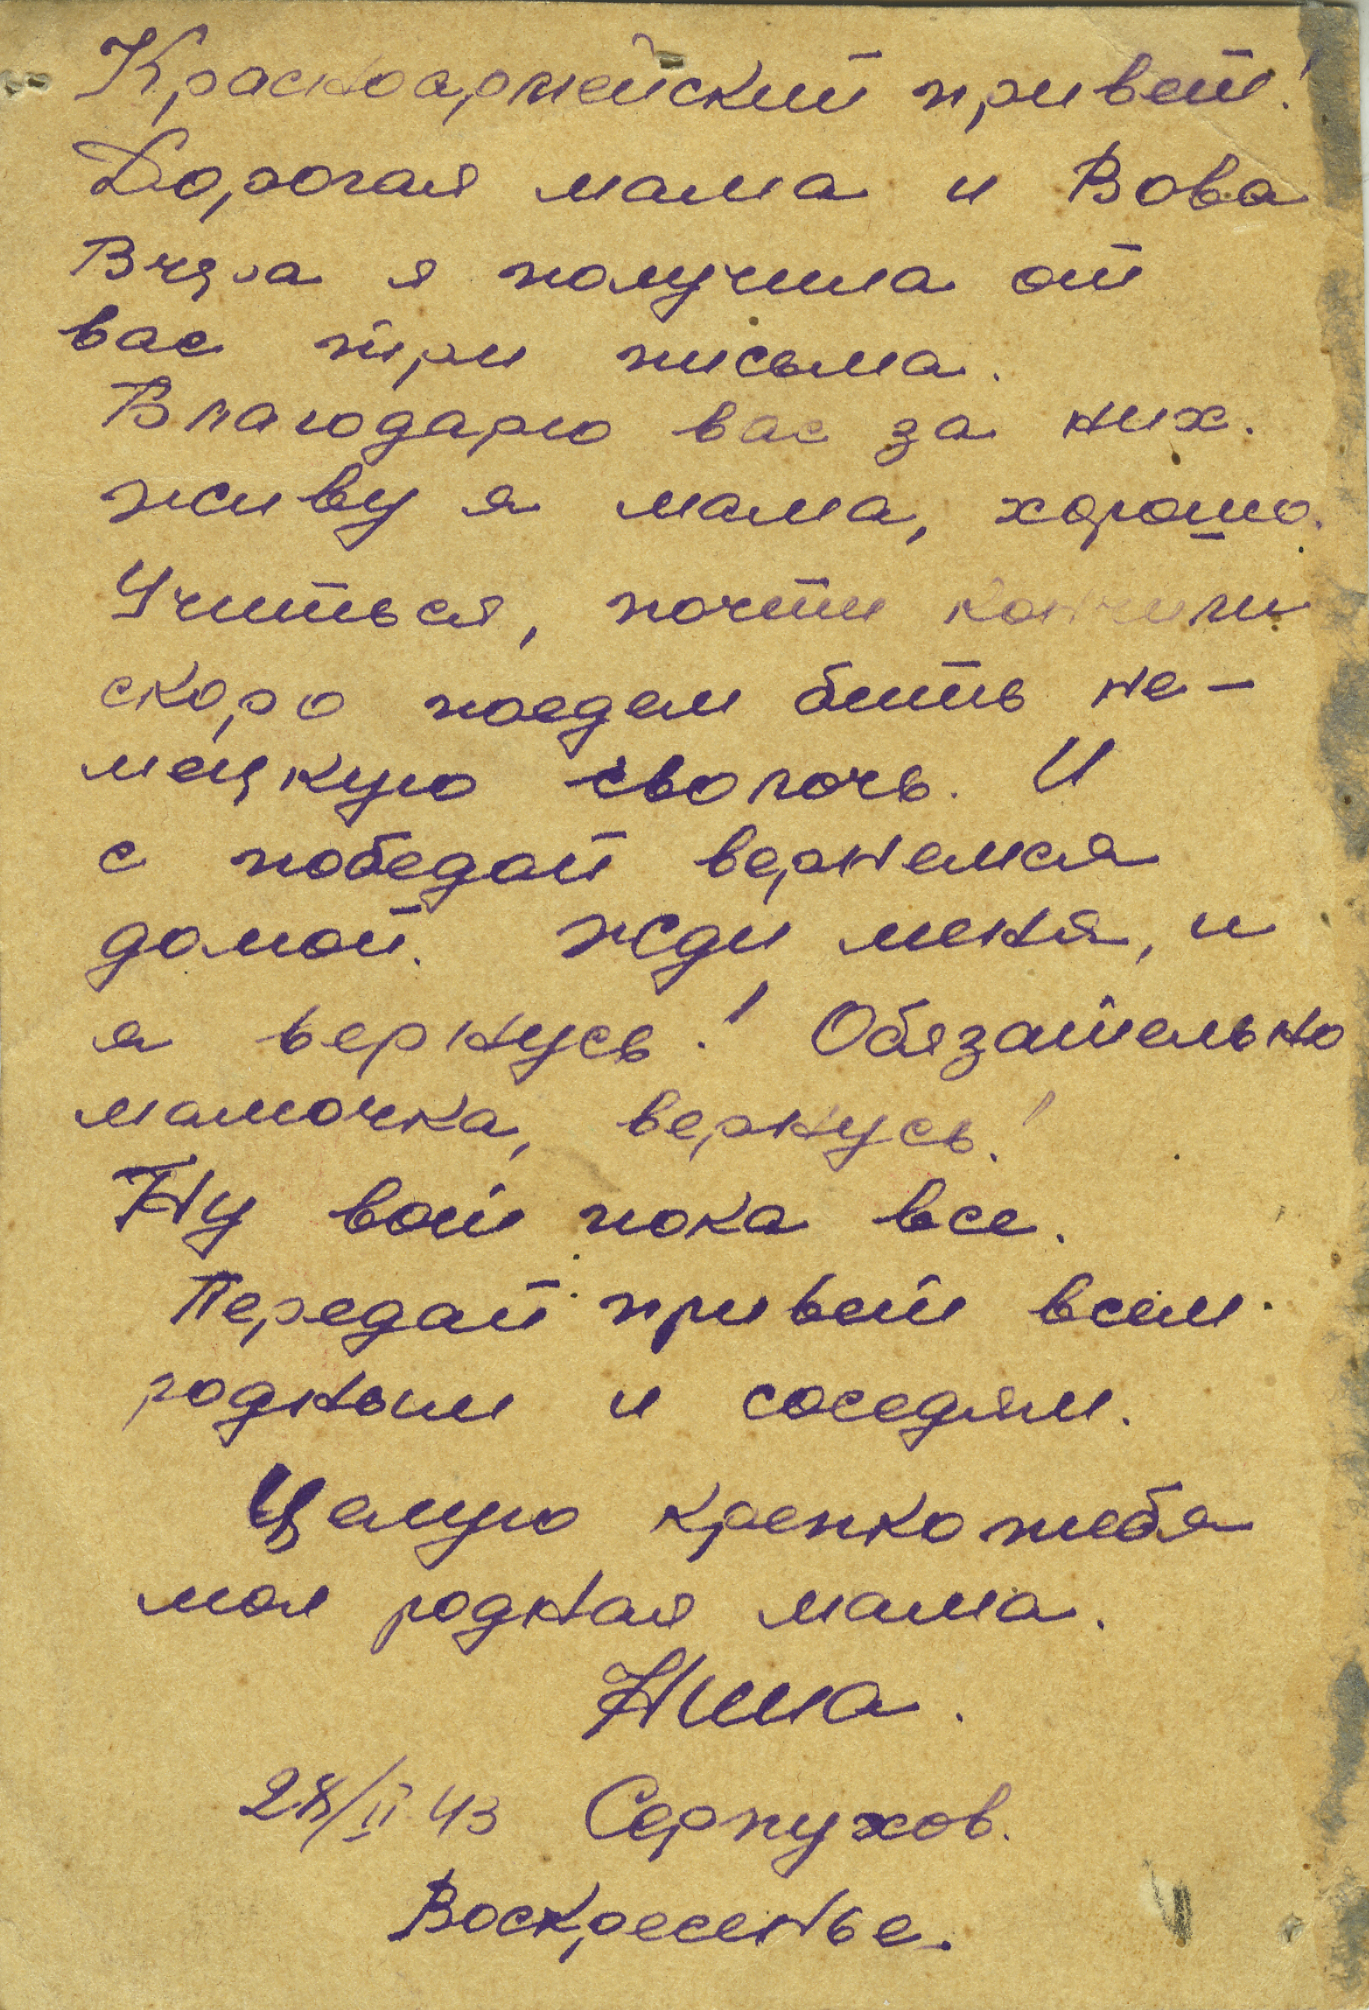 Красноармейский привет!
Дорогая мама и Вова
Вчера я получила от
вас три письма.
Благодарю вас за них.
Живу я мама, хорошо.
Учиться, почти кончили
скоро поедем бить не-
мецкую сволочь. И
с победой вернемся
домой. Жди меня, и
я вернусь! Обязательно
мамочка, вернусь!
Ну вот пока все.
Передай привет всем
родным и соседям.
Целую крепко тебя
моя родная мама.
Нина.
28/II 43 Серпухов.
Воскресенье.